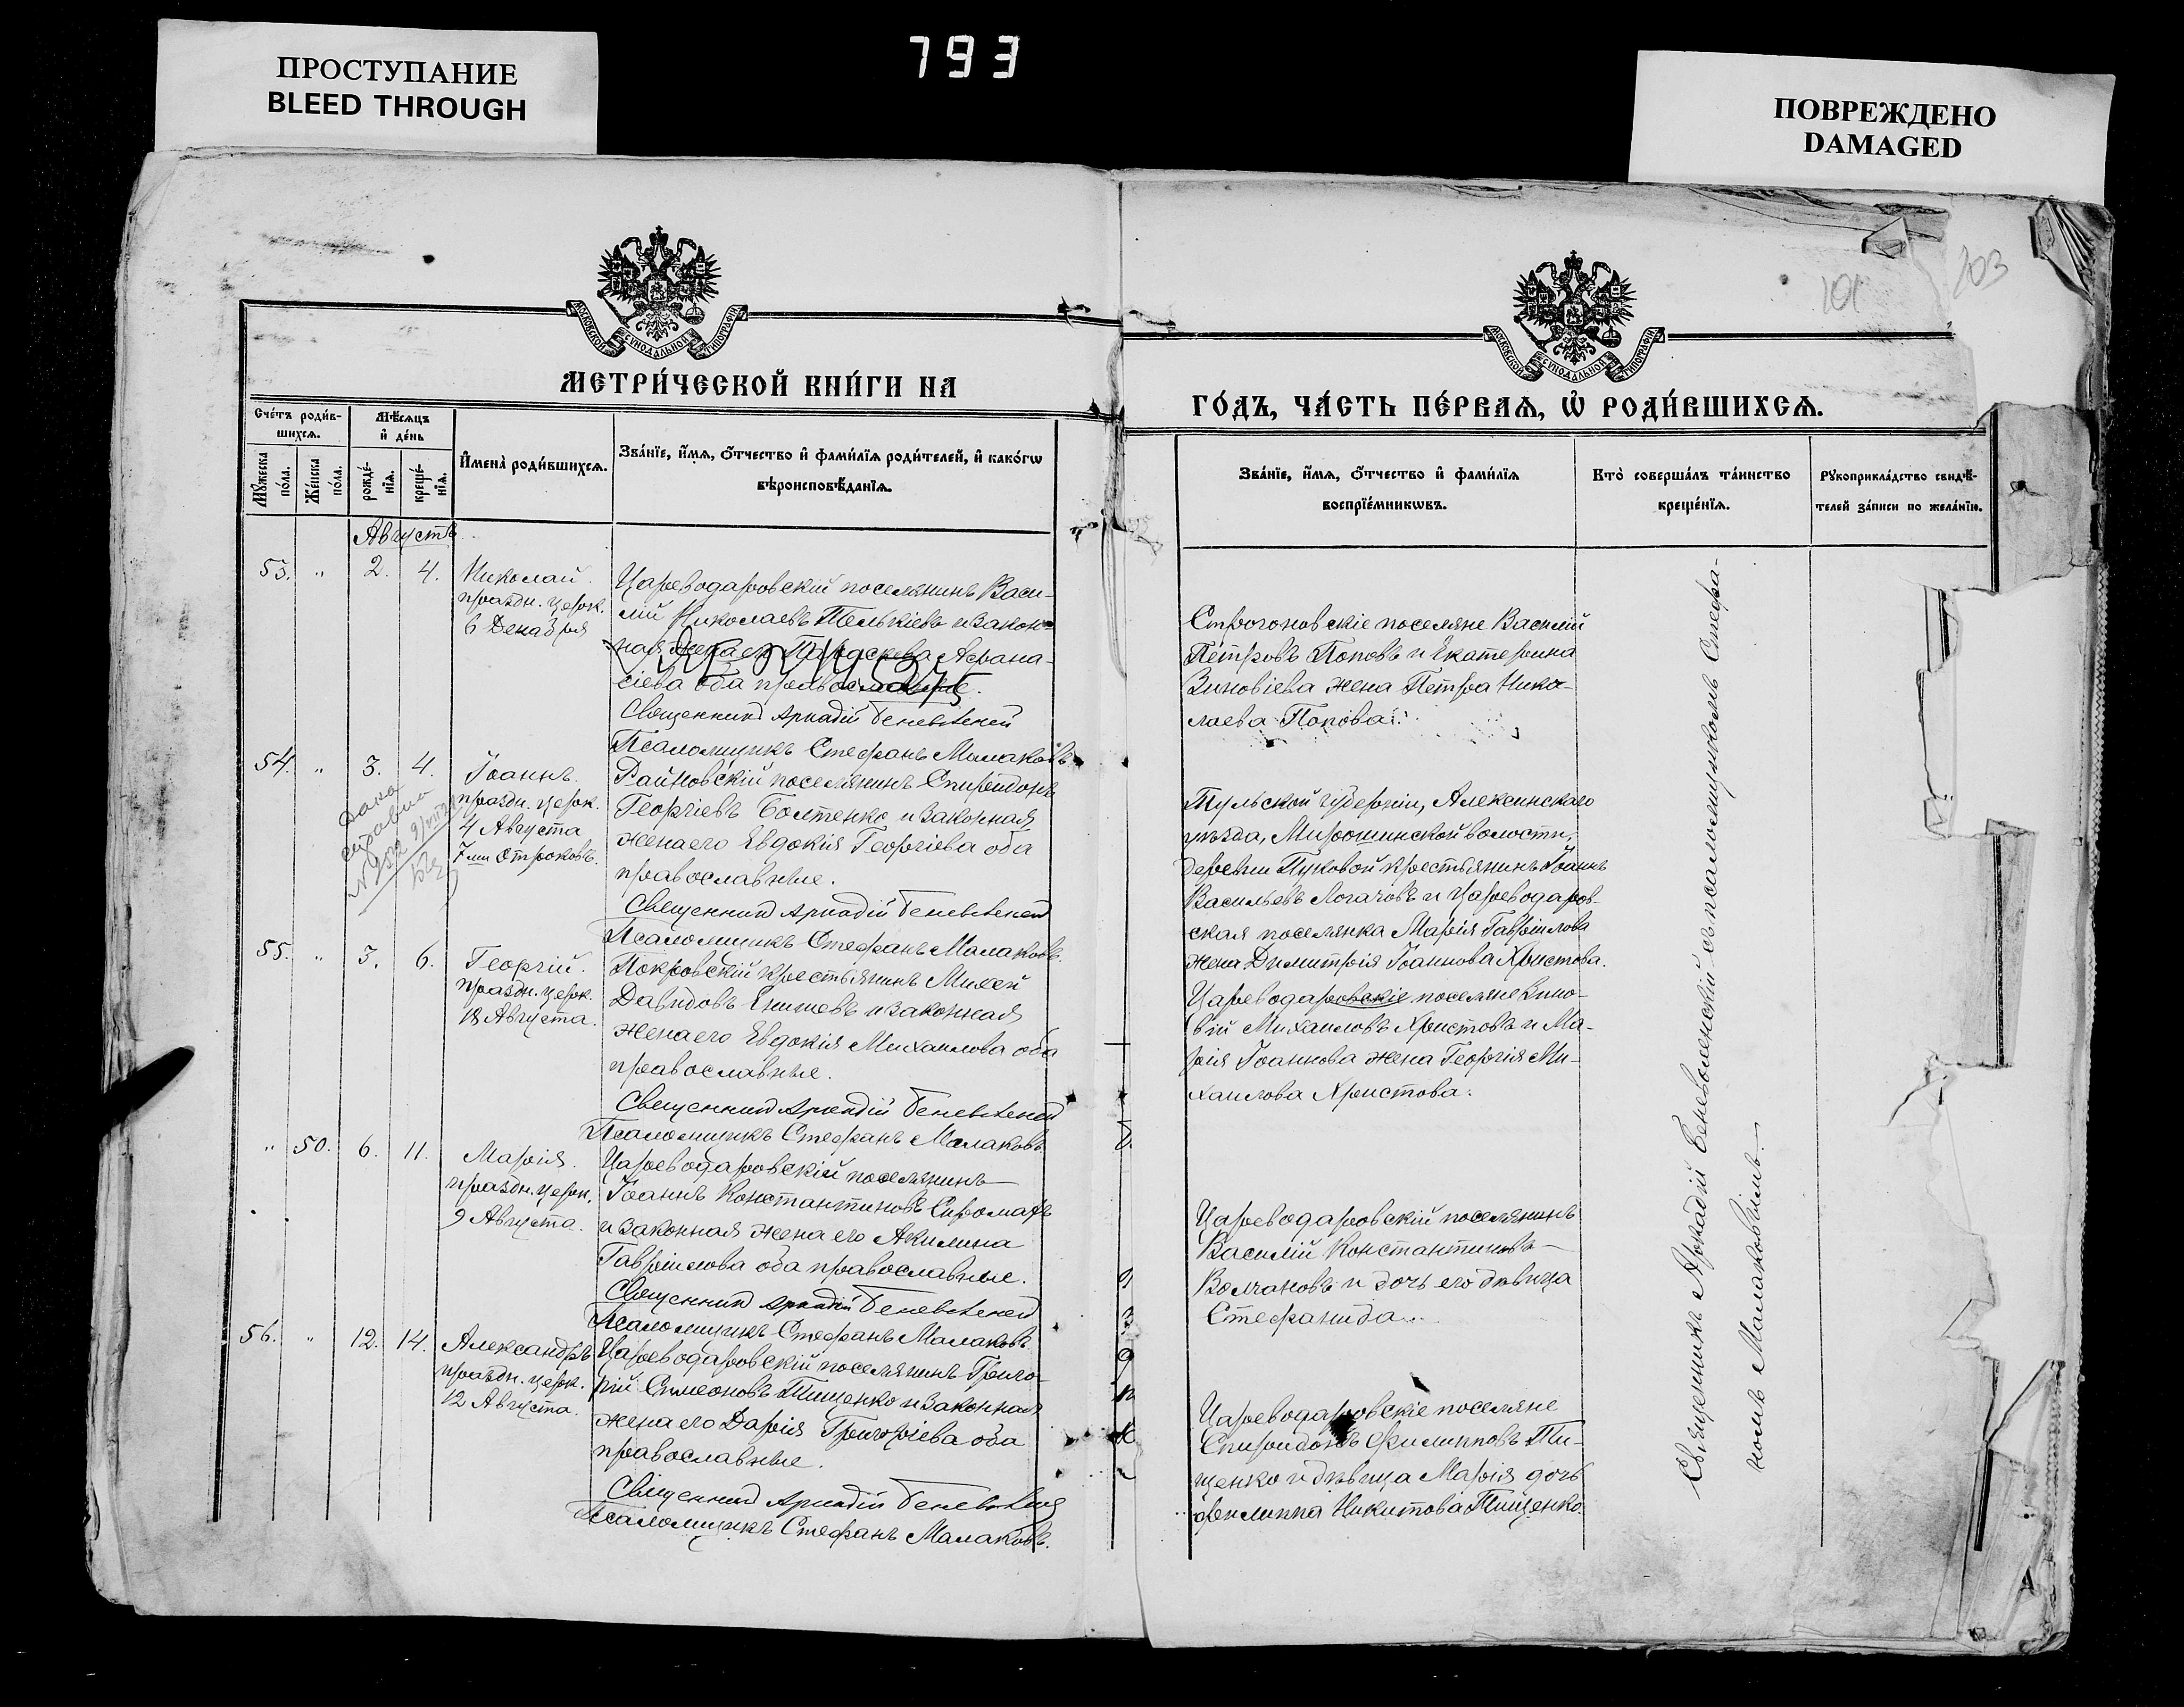 ПРОСТУПАНИЕ
BLEED THROUGH
793
ПОВРЕЖДЕНО
DAMAGED
101
103
МОСКОВСКОЙ СУНОДАЛЬНОЙ ТИПОГРАФІИ
МОСКОВСКОЙ СУНОДАЛЬНОЙ ТИПОГРАФІИ
МЕТРИ́ЧЕСКОЙ КНИ́ГИ НА
ГО́ДЪ, ЧА́СТЬ ПЕ́РВАѦ, Ѡ҆ РОДИ́ВШИХСѦ.
Сче́тъ роди́в-
шихсѧ.
Мꙋ́жеска по́ла.
Же́нска по́ла.
Мѣ́сѧцъ
и҆ де́нь
рожде́-
нїѧ.
креще́-
нїѧ.
И҆мена̀ роди́вшихсѧ.
Зва́нїе, и҆́мѧ, ѻ҆́тчество и҆ фами́лїѧ роди́телей, и҆ како́гѡ
вѣроисповѣ́данїѧ.
Зва́нїе, и҆́мѧ, ѻ҆́тчество и҆ фами́лїѧ
воспрїе́мникѡвъ.
Кто̀ соверша́лъ та́инство
креще́нїѧ.
Рꙋкоприкла́дство свидѣ́-
телей за́писи по жела́нїю.
Августъ
53. " 2. 4. Николай.
праздн. церк.
6 Декабря
Цареводаровскій поселянинъ Васи-
лій Николаевъ Телькіевъ и закон-
ная жена его Параскева Афана-
сіева оба православные.
Священникъ Аркадій Беневоленскій
Псаломщикъ Стефанъ Малаковъ
Строгоновскіе поселяне Василій
Петровъ Поповъ и Екатерина
Зиновіева жена Петра Нико-
лаева Попова.
54. " 3. 4. Іоаннъ.
праздн. церк.
4 Августа
7ми Отроковъ.
Дана
справка
Райновскій поселянинъ Спиридонъ
Георгіевъ Болтенко и законная
жена его Евдокія Георгіева оба
православные.
Священникъ Аркадій Беневоленскій
Псаломщикъ Стефанъ Малаковъ.
Тульской губерніи, Алексинскаго
уѣзда, Мирошинской волости,
деревни Пуковой крестьянинъ Іоаннъ
Васильевъ Логачовъ и Цареводаров-
ская поселянка Марія Гавриилова
жена Димитрія Іоаннова Христова.
55. " 3. 6. Георгій.
праздн. церк.
18 Августа.
Покровскій крестьянинъ Михей
Давидовъ Енишевъ и законная
жена его Евдокія Михаилова оба
православные.
Священникъ Аркадій Беневоленскій
Псаломщикъ Стефанъ Малаковъ
Цареводаровскіе поселяне Зино-
вій Михаиловъ Христовъ и Ма-
рія Іоаннова жена Георгія Ми-
хаилова Христова.
" 50. 6. 11. Марія.
праздн. церк.
9 Августа.
Цареводаровскій поселянинъ
Іоаннъ Константиновъ Сиромахъ
и законная жена его Акилина
Гавриилова оба православные.
Священникъ Аркадій Беневоленскій
Псаломщикъ Стефанъ Малаковъ
Цареводаровскій поселянинъ
Василій Константиновъ
Волчановъ и дочь его дѣвица
Стефанида.
56. " 12. 14. Александръ
праздн. церк.
12 Августа.
Цареводаровскій поселянинъ Григо-
рій Симеоновъ Тищенко и законная
жена его Дарія Григоріева оба
православные.
Священникъ Аркадій Беневоленскій
Псаломщикъ Стефанъ Малаковъ.
Цареводаровскіе поселяне
Спиридонъ Филипповъ Ти-
щенко и дѣвица Марія дочь
Филиппа Никитова Тищенко.
Священникъ Аркадій Беневоленскій съ псаломщикомъ Стефа-
номъ Малаковымъ.